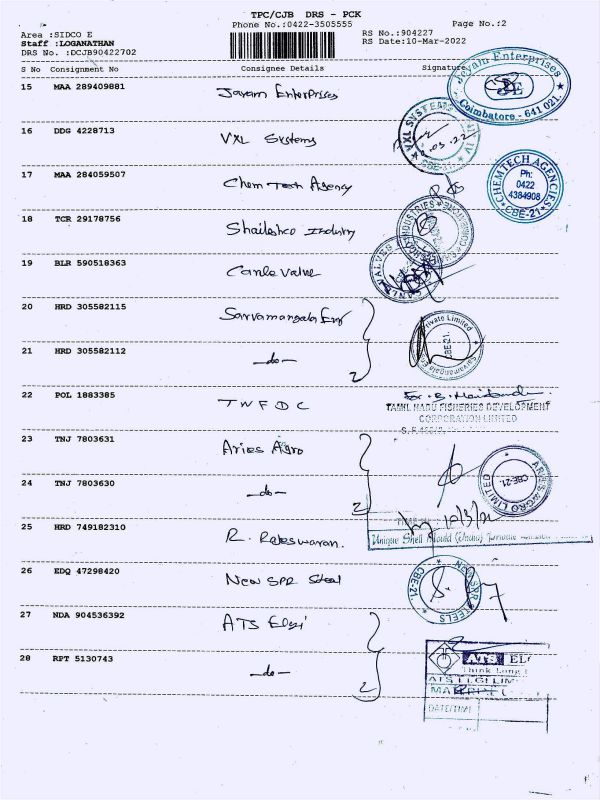 TPC/CJB DRS - PCK
Phone No.:0422-3505555
Page No.:2
Area :SIDCO E
Staff :LOGANATHAN
DRS No. :DCJB90422702
RS No.:904227
RS Date:10-Mar-2022
S No Consignment No Consignee Details Signature
Jayam Enterprises
Coimbatore - 641 021.
JE
15 MAA 289409881 Jayam Enterprises
16 DDG 4228713 VXL Systems
VXL SYSTEMS
CBE-21
17 MAA 284059507 Chem Tech Agency
CHEMTECH AGENCIES
Ph:
0422
4384908
CBE-21
18 TCR 29178756 Shailesh Industry
INDUSTRIES
19 BLR 590518363 Canle Valve
CANLE VALVES
20 HRD 305582115 Sarvamangala Eng
Private Limited
CBE-21.
21 HRD 305582112 -do-
2
22 POL 1883385 TNFDC
TAMIL NADU FISHERIES DEVELOPMENT
CORPORATION LIMITED
23 TNJ 7803631 Aries Agro
ARIES AGRO LIMITED
CBE-21.
24 TNJ 7803630 -do-
2
25 HRD 749182310 R. Rajeswaran.
Unique Shell Mould (India) Private
26 EDQ 47298420 New SPR Steel
NEW SPR STEELS
CBE-21
27 NDA 904536392 ATS Elgi
28 RPT 5130743 -do-
2
ATS EL
Think Long
ATS ELGI LIM
DATE/TIME